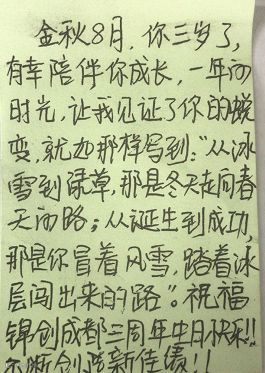 金秋8月，你三岁了，
有幸陪伴你成长，一年的
时光，让我见证了你的蜕
变，就如那样写到："从冰
雪到绿草，那是冬天走向春
天的路；从诞生到成功，
那是你冒着风雪，踏着冰
层闯出来的路"。祝福
锦创成都三周年生日快乐!!
不断创造新佳绩!!